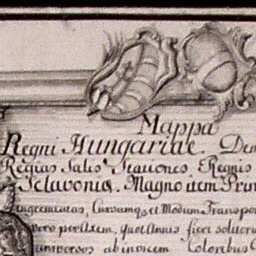 Mappa
Regni Hungariae Dem
Regias Salis Stationes, Regnis
Sclavonia, Magno item Prin
Cursumq. et Modum Transpor
vero per Item, quot Annis fieri solitor
universos ab invicem Coloribus